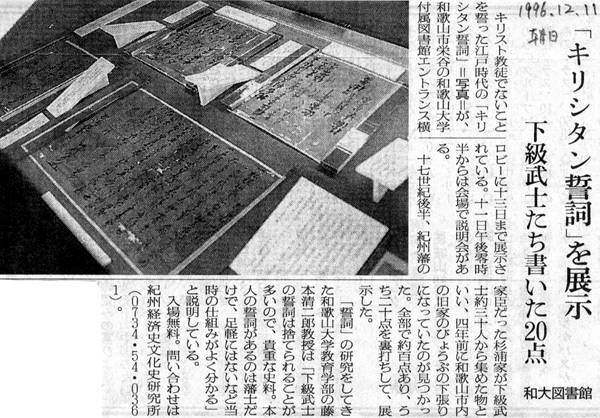 1996.12.11
「キリシタン誓詞」を展示
下級武士たち書いた20点
和大図書館
キリスト教徒でないこと
を誓った江戸時代の「キリ
シタン誓詞」＝写真＝が、
和歌山市栄谷の和歌山大学
付属図書館エントランス横
ロビーに十三日まで展示さ
れている。十一日午後零時
半からは会場で説明会があ
る。
十七世紀後半、紀州藩の
家臣だった杉浦家が下級武
士約三十人から集めた物と
いい、四年前に和歌山市内
の旧家のびょうぶの下張り
になっていたのが見つかっ
た。全部で約百点あり、う
ち二十点を裏打ちして、展
示した。
「誓詞」の研究をしてき
た和歌山大学教育学部の藤
本清二郎教授は「下級武士
の誓詞は捨てられることが
多いので、貴重な史料。本
人の誓詞があるのは藩士だ
けで、足軽にはないなど当
時の仕組みがよく分かる」
と説明している。
入場無料。問い合わせは
紀州経済史文化史研究所
（0734・54・036
1）。